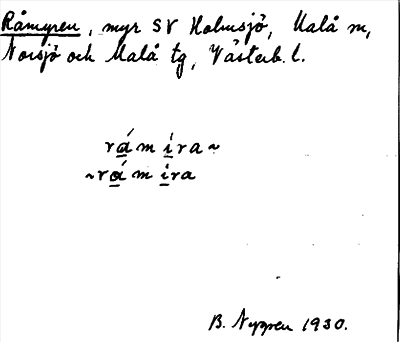 Råmyren, myr SV Holmsjö, Malå m,
Norsjö och Malå tg, Västerb. l.
rá̲mi̲ra~
~rá̲mi̲ra
B. Nygren 1930.